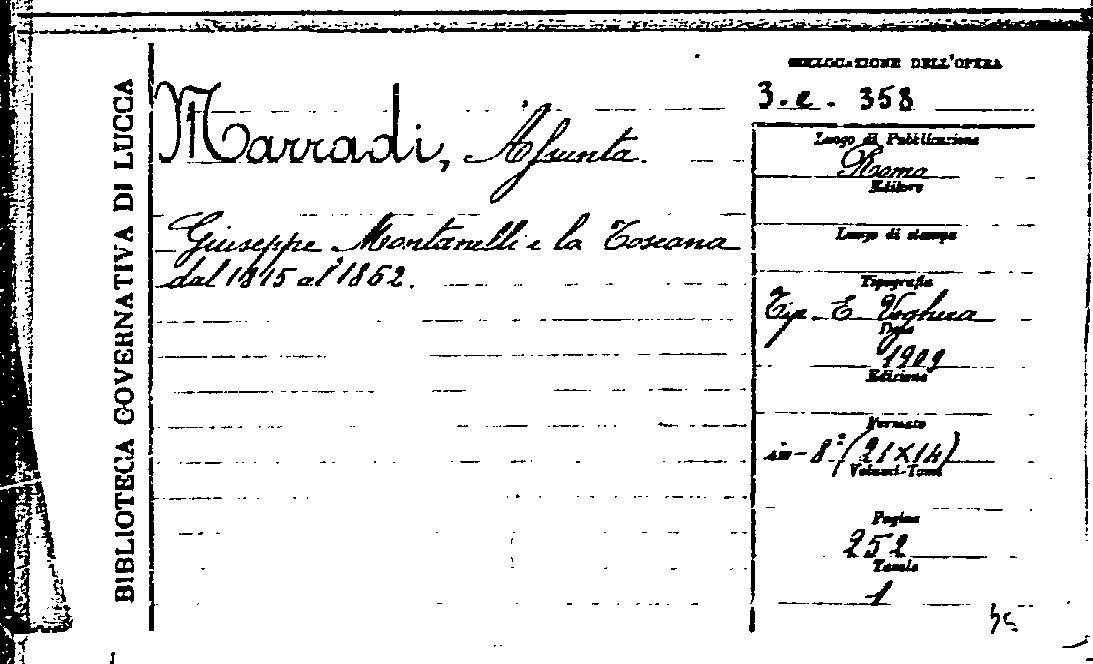 BIBLIOTECA GOVERNATIVA DI LUCCA
Marradi, Assunta.
Giuseppe Montanelli e la Toscana
dal 1815 al 1862.
COLLOCAZIONE DELL'OPERA
3. e. 358
Luogo di Pubblicazione
Roma
Editore
Luogo di stampa
Tipografia
Tip. E. Voghera
1909
Edizione
Formato
in-8º (21x14)
Volumi-Tomi
Pagine
252
Tavole
1